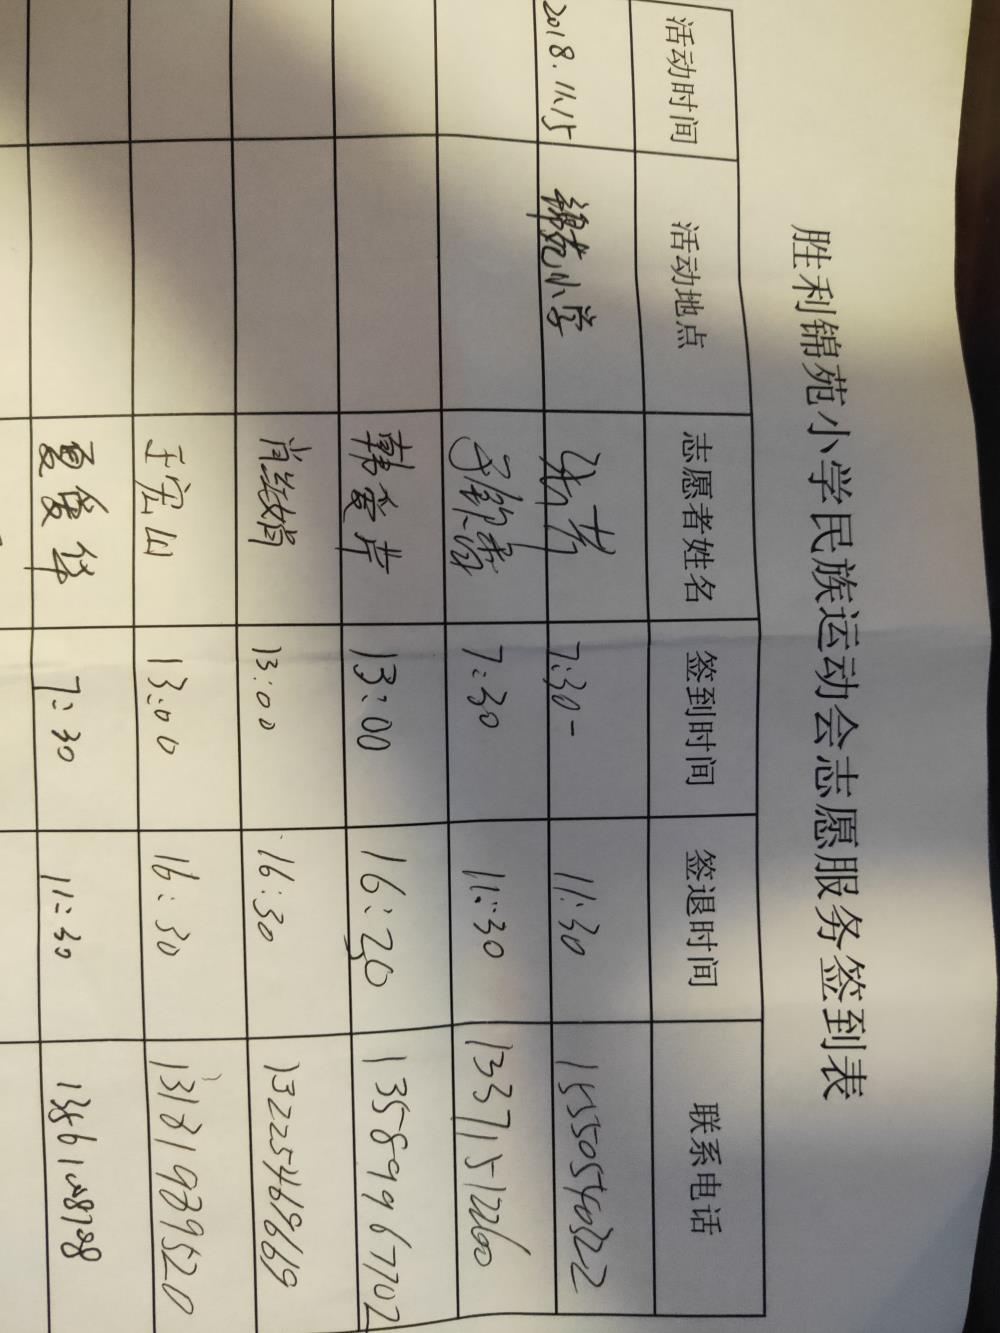 胜利锦苑小学民族运动会志愿服务签到表
活动时间 活动地点 志愿者姓名 签到时间 签退时间 联系电话
2018.11.15 锦苑小学 7:30- 11:30 15550540322
7:30 11:30 13371512260
韩爱芹 13:00 16:20 13589967702
肖益娟 13:00 16:30 13225469669
王宏山 13:00 16:30 13181939520
夏爱华 7:30 11:30